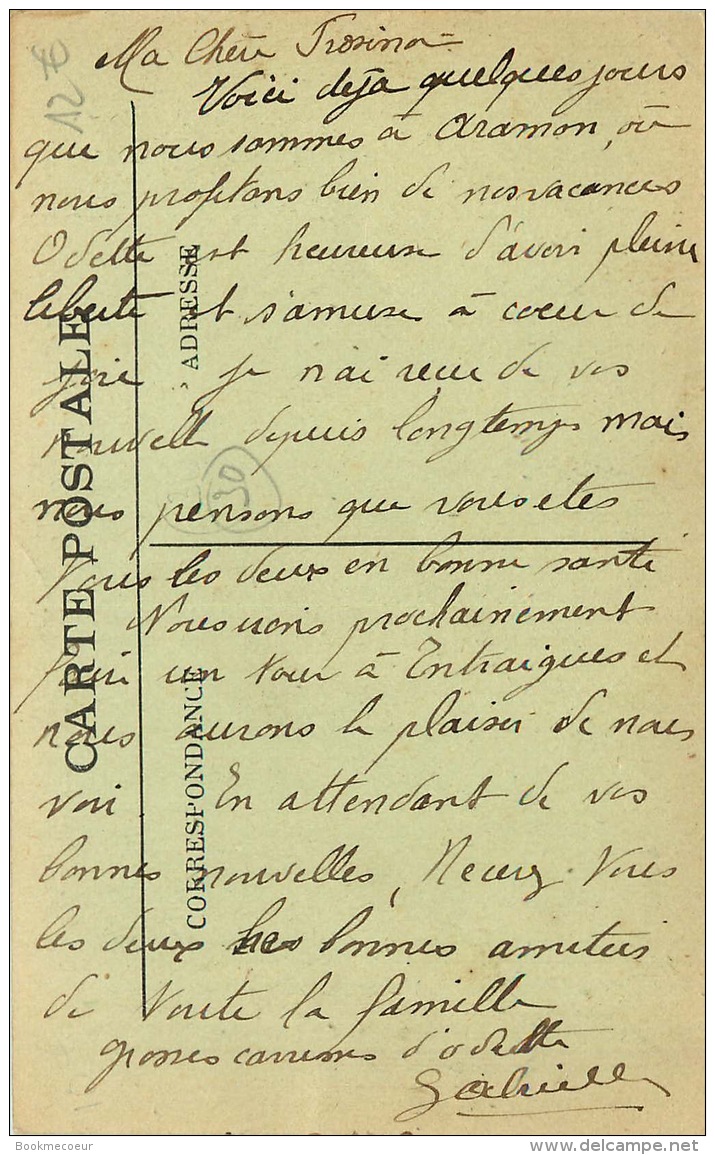 Ma Chère Frosina
Voici déja quelques jours
que nous sommes à Aramon, où
nous profitons bien de nos vacances
Odette est heureuse d'avoir pleine
liberté et s'amuse à coeur de
joie je n'ai reçue de vos
nouvelle depuis longtemps mais
nous pensons que vous etes
tous les deux en bonne santé
Nous irons prochainement
faire un tour à Entraigues et
nous aurons le plaisir de nous
voir En attendant de vos
bonnes nouvelles, Recevez tous
les deux les bonnes amitiés
de toute la famille
grosses caresses d'odette
Gabrielle
CARTE POSTALE
ADRESSE
CORRESPONDANCE
12 €
30
Bookmecoeur
delcampe.net